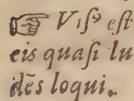 ☞ Visº est
eis quasi lu
dēs loqui.